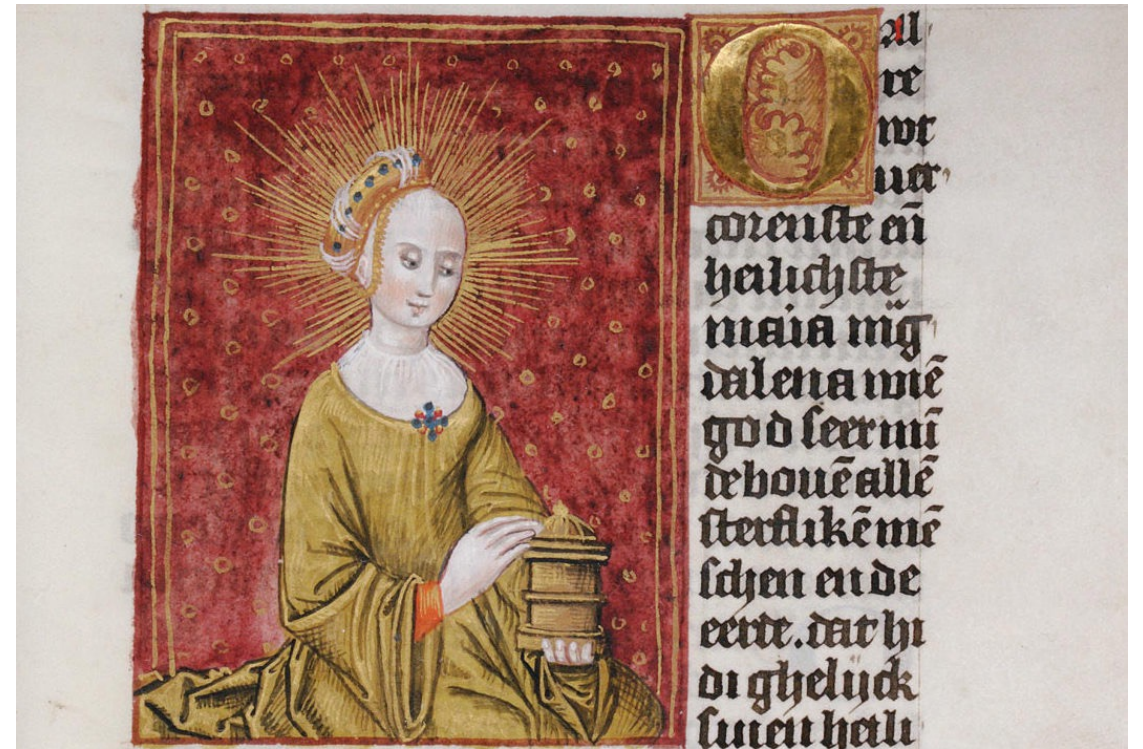 O al
re
wt
uer
corenste eñ
heilichste
maia mg̃
dalena wiē
god seer mī
de bouē allē
sterflikē mē
schen en de
eerde. dat hi
di ghelijck
sinen heili